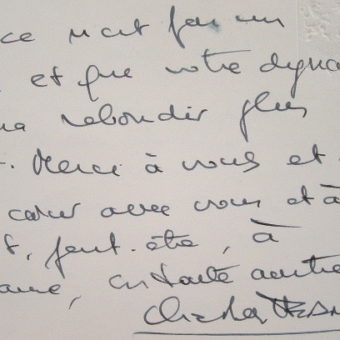 ce n'est pas un
et que votre dyna
ra rebondir plus
. Merci à vous et
cœur avec vous et à
t, peut-être, à
, en toute amitié